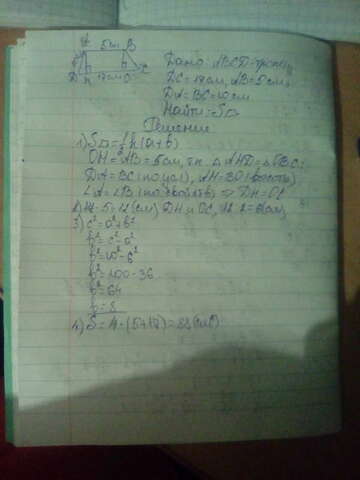 5см B
D H 17см O C
Дано: ABCD-трапец
DC=17см, AB=5см,
DA=BC=10см
Найти: S
Решение
1) S=½h(a+b)
OH=AB=5см, т.к. △AHD=△OBC:
DA=BC (по усл), AH=BO (
∠A=∠B (по свойств) ⇒ DH=OC
2) 17-5=12(см) DH и OC, 12:2=6(см)
3) c²=a²+b²
b²=c²-a²
b²=10²-6²
b²=100-36
b²=64
b=8
4) S=4·(5+17)=88(см²)